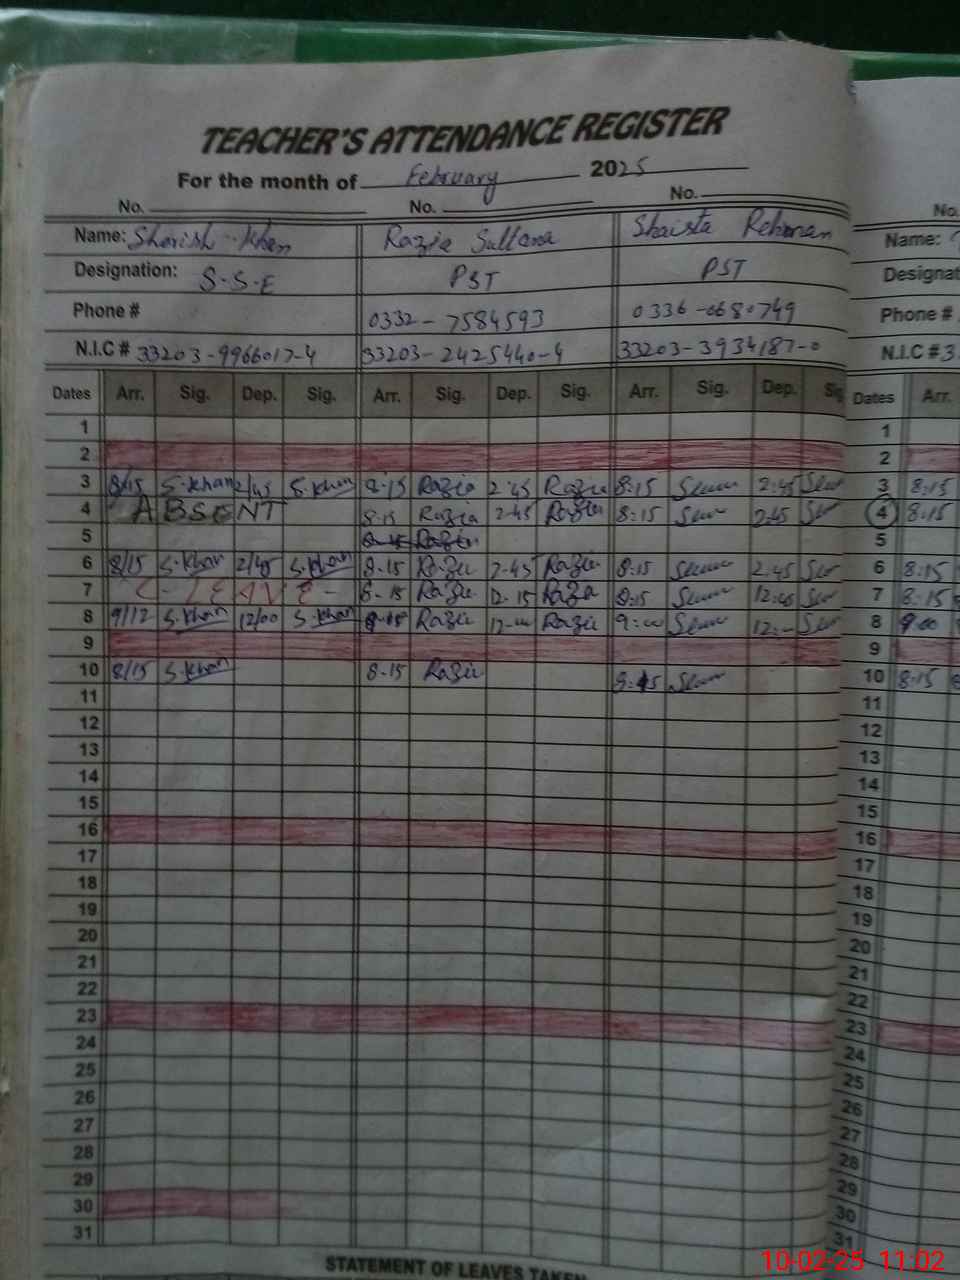 TEACHER'S ATTENDANCE REGISTER
For the month of February 2025
No. No. No. No.
Name: Sherish Khan Razia Sultana Shaista Rehman Name:
Designation: S.S.E PST PST Designat
Phone # 0332-7584593 0336-0680749 Phone #
N.I.C # 33203-9966017-4 33203-2425440-4 33203-3934187-0 N.I.C # 3
Dates Arr. Sig. Dep. Sig. Arr. Sig. Dep. Sig. Arr. Sig. Dep. Sig Dates Arr.
1 1
2 2
3 8/15 S.Khan 2/45 S.Khan 8-15 Razia 2-45 Razia 8:15 2:45 3 8:15
4 ABSENT 8-15 Razia 2-45 Razia 8:15 2:45 4 8:15
5 8-15 Razia 5
6 8/15 S.Khan 2/45 S.Khan 8-15 Razia 2-45 Razia 8:15 2:45 6 8:15
7 C-LEAVE- 8-15 Razia 12-15 Razia 8:15 12:45 7 8:15
8 9/12 S.Khan 12/00 S.Khan Razia 12-00 Razia 9:00 12:00 8 9:00
9 9
10 8/15 S.Khan 8-15 Razia 10 8:15
11 11
12 12
13 13
14 14
15 15
16 16
17 17
18 18
19 19
20 20
21 21
22 22
23 23
24 24
25 25
26 26
27 27
28 28
29 29
30 30
31 31
STATEMENT OF LEAVES TAKEN
10-02-25 11:02